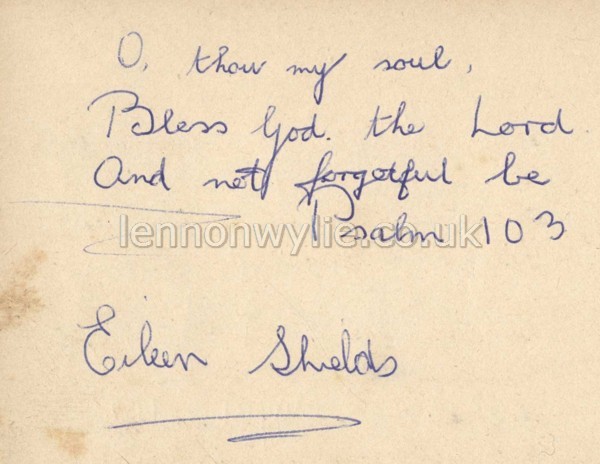 O, thou my soul,
Bless God. the Lord.
And not forgetful be
Psalm 103
lennonwylie.co.uk
Eileen Shields